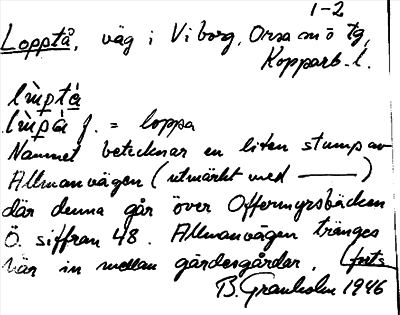 1-2
Lopptå, väg i Viborg, Orsa sn ö tg,
Kopparb. l.
lìptà
lìpà f. = loppa
Namnet betecknar en liten stump av
Allmanvägen (utmärkt med ———)
där denna går över Offermyrsbäcken
Ö. siffran 48. Allmanvägen tränges
här in mellan gärdesgårdar. (forts
B. Granholm 1946